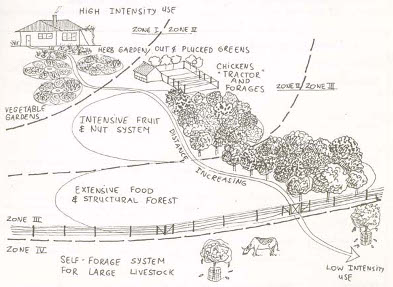 HIGH INTENSITY USE
ZONE I ZONE II
HERB GARDEN CUT & PLUCKED GREENS
CHICKENS
"TRACTOR"
AND
FORAGES
ZONE II ZONE III
VEGETABLE
GARDENS
INTENSIVE FRUIT
& NUT SYSTEM
DISTANCE INCREASING
EXTENSIVE FOOD
& STRUCTURAL FOREST
ZONE III
ZONE IV
SELF-FORAGE SYSTEM
FOR LARGE LIVESTOCK
LOW INTENSITY
USE